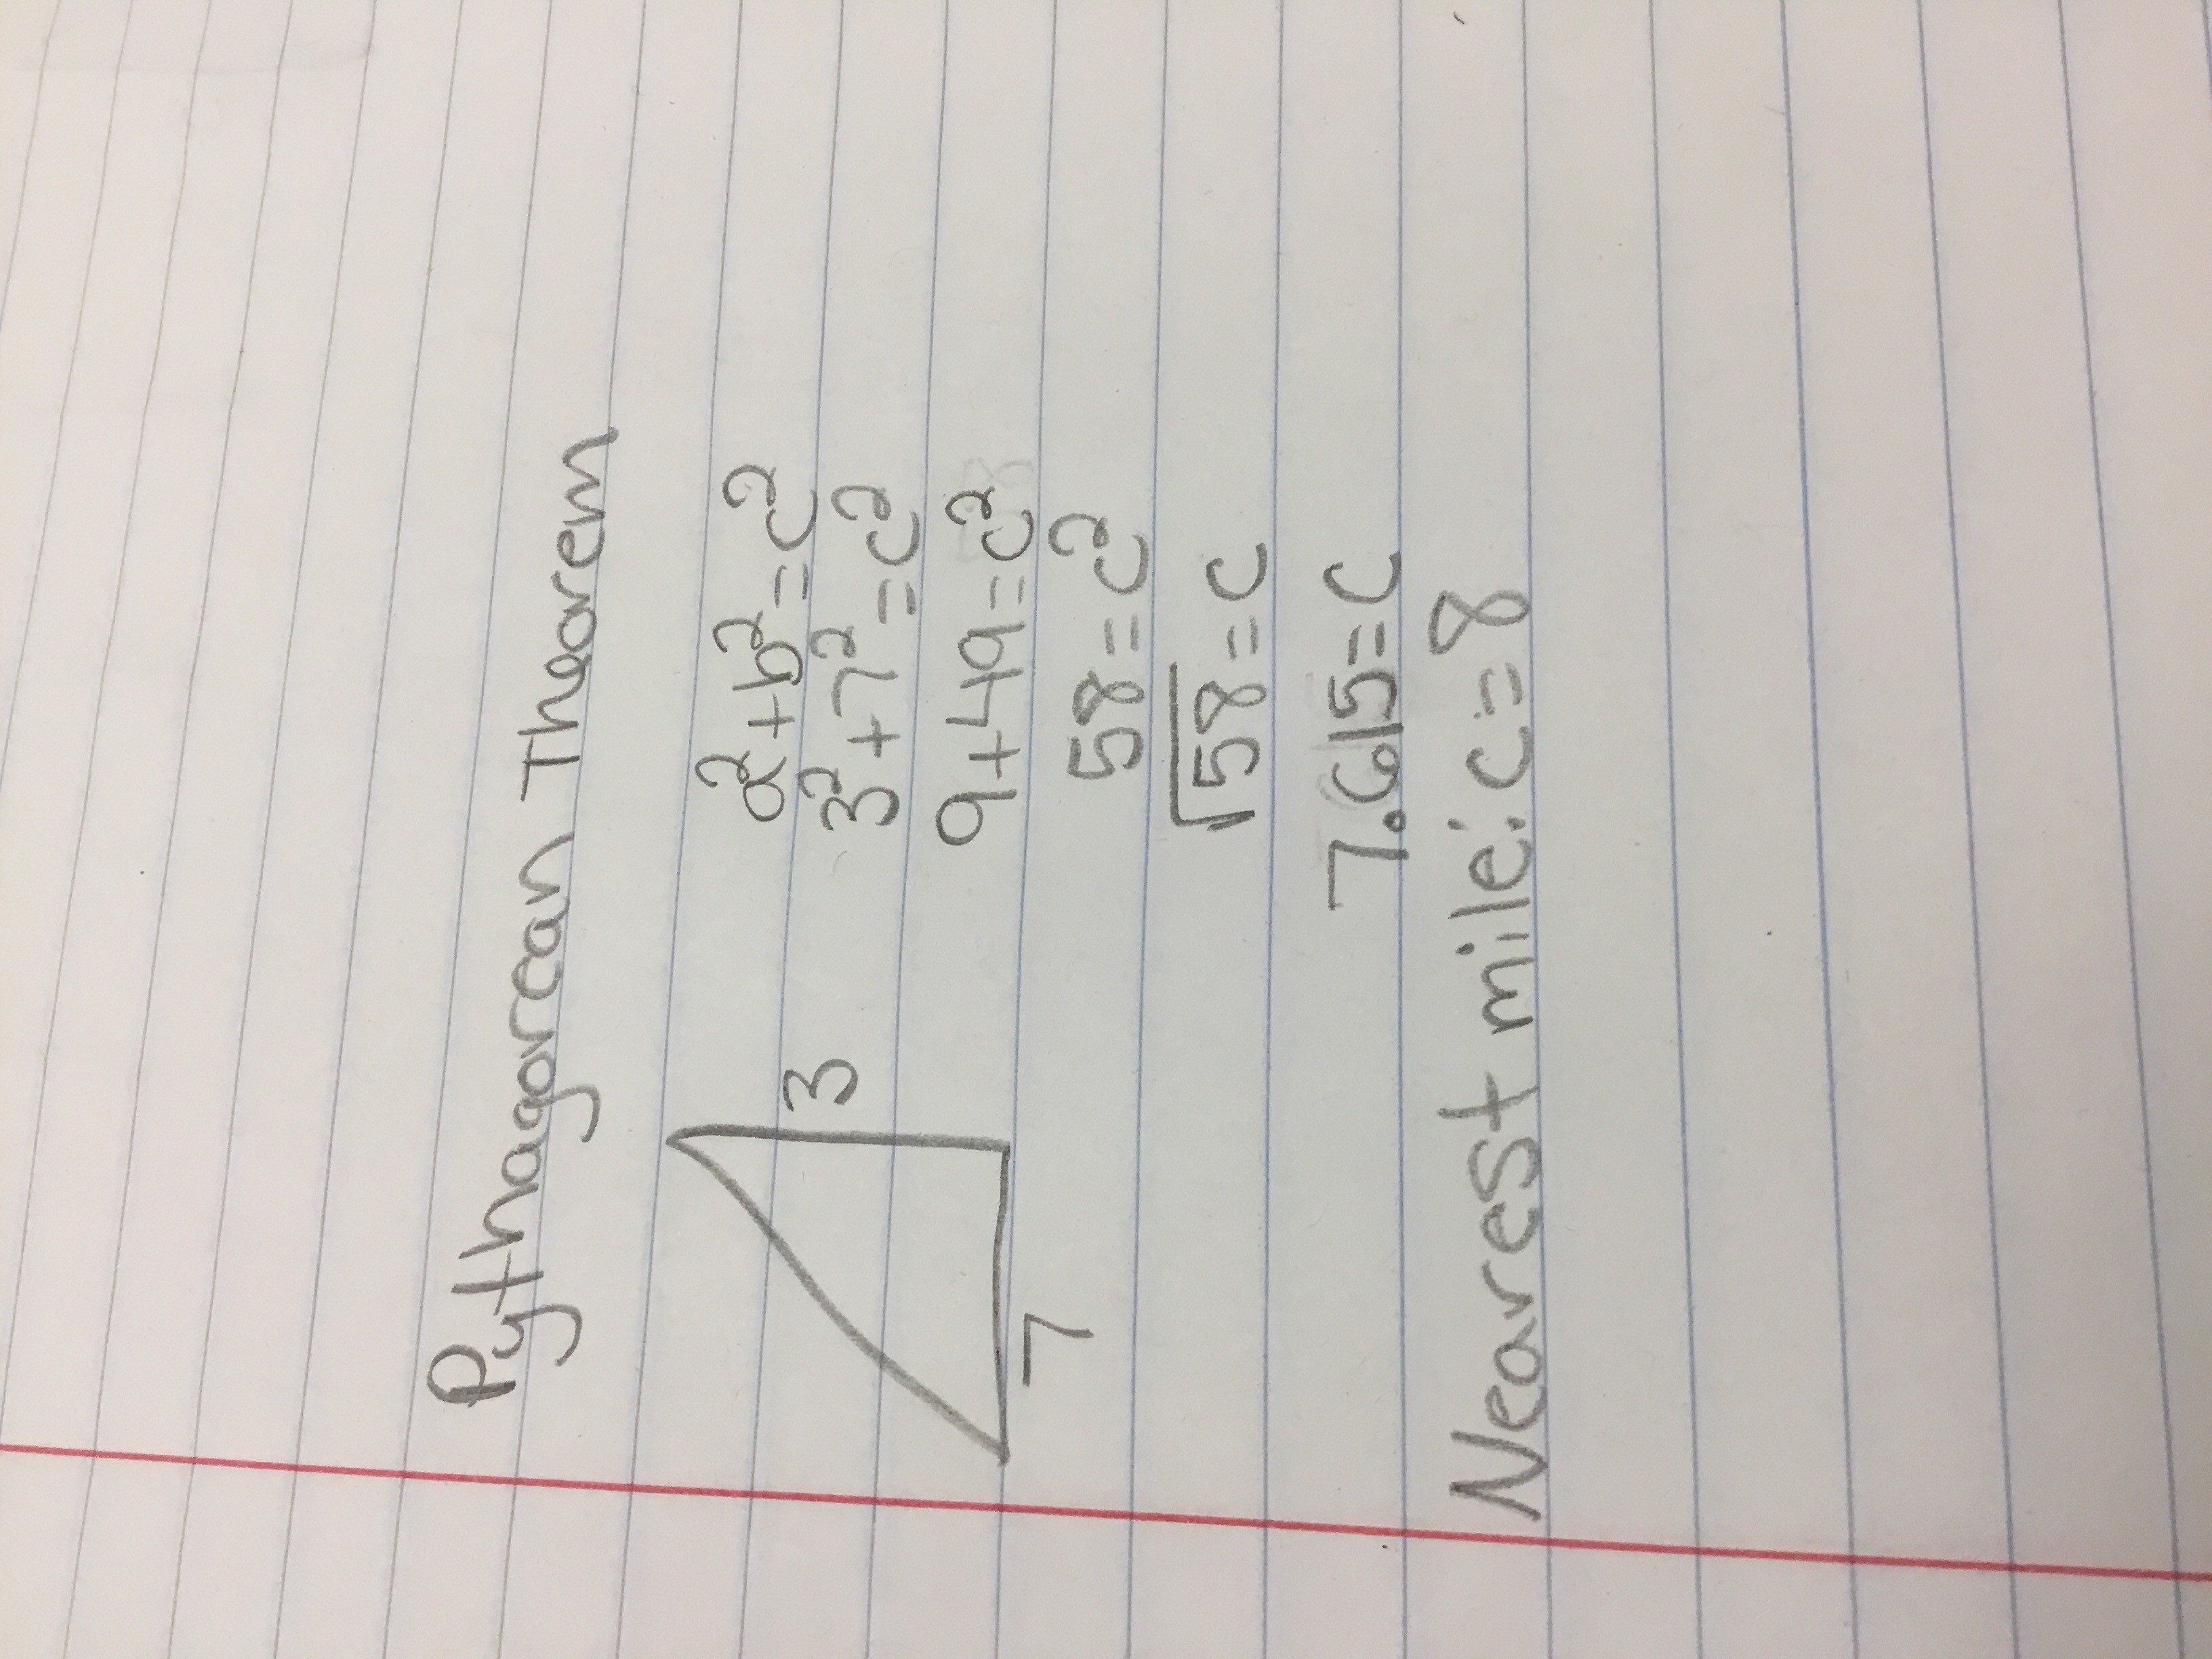 Pythagorean Theorem
a²+b²=c²
3
3²+7²=c²
9+49=c²
7
58=c²
√58=c
7.615=c
Nearest mile: c=8